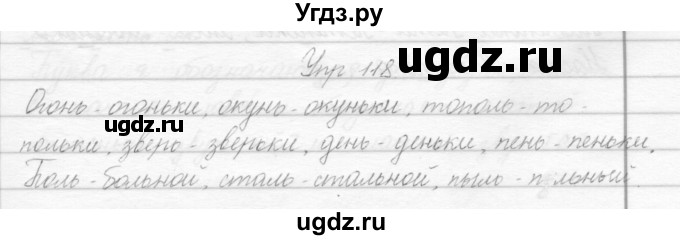 Угдз.ру
Упр 118
угдз.ru
Огонь - огоньки, окунь - окуньки, тополь - то-
угдз.ru
польки, зверь - зверьки, день - деньки, пень - пеньки.
Боль - больной, сталь - стальной, пыль - п льный.
угдз.ru